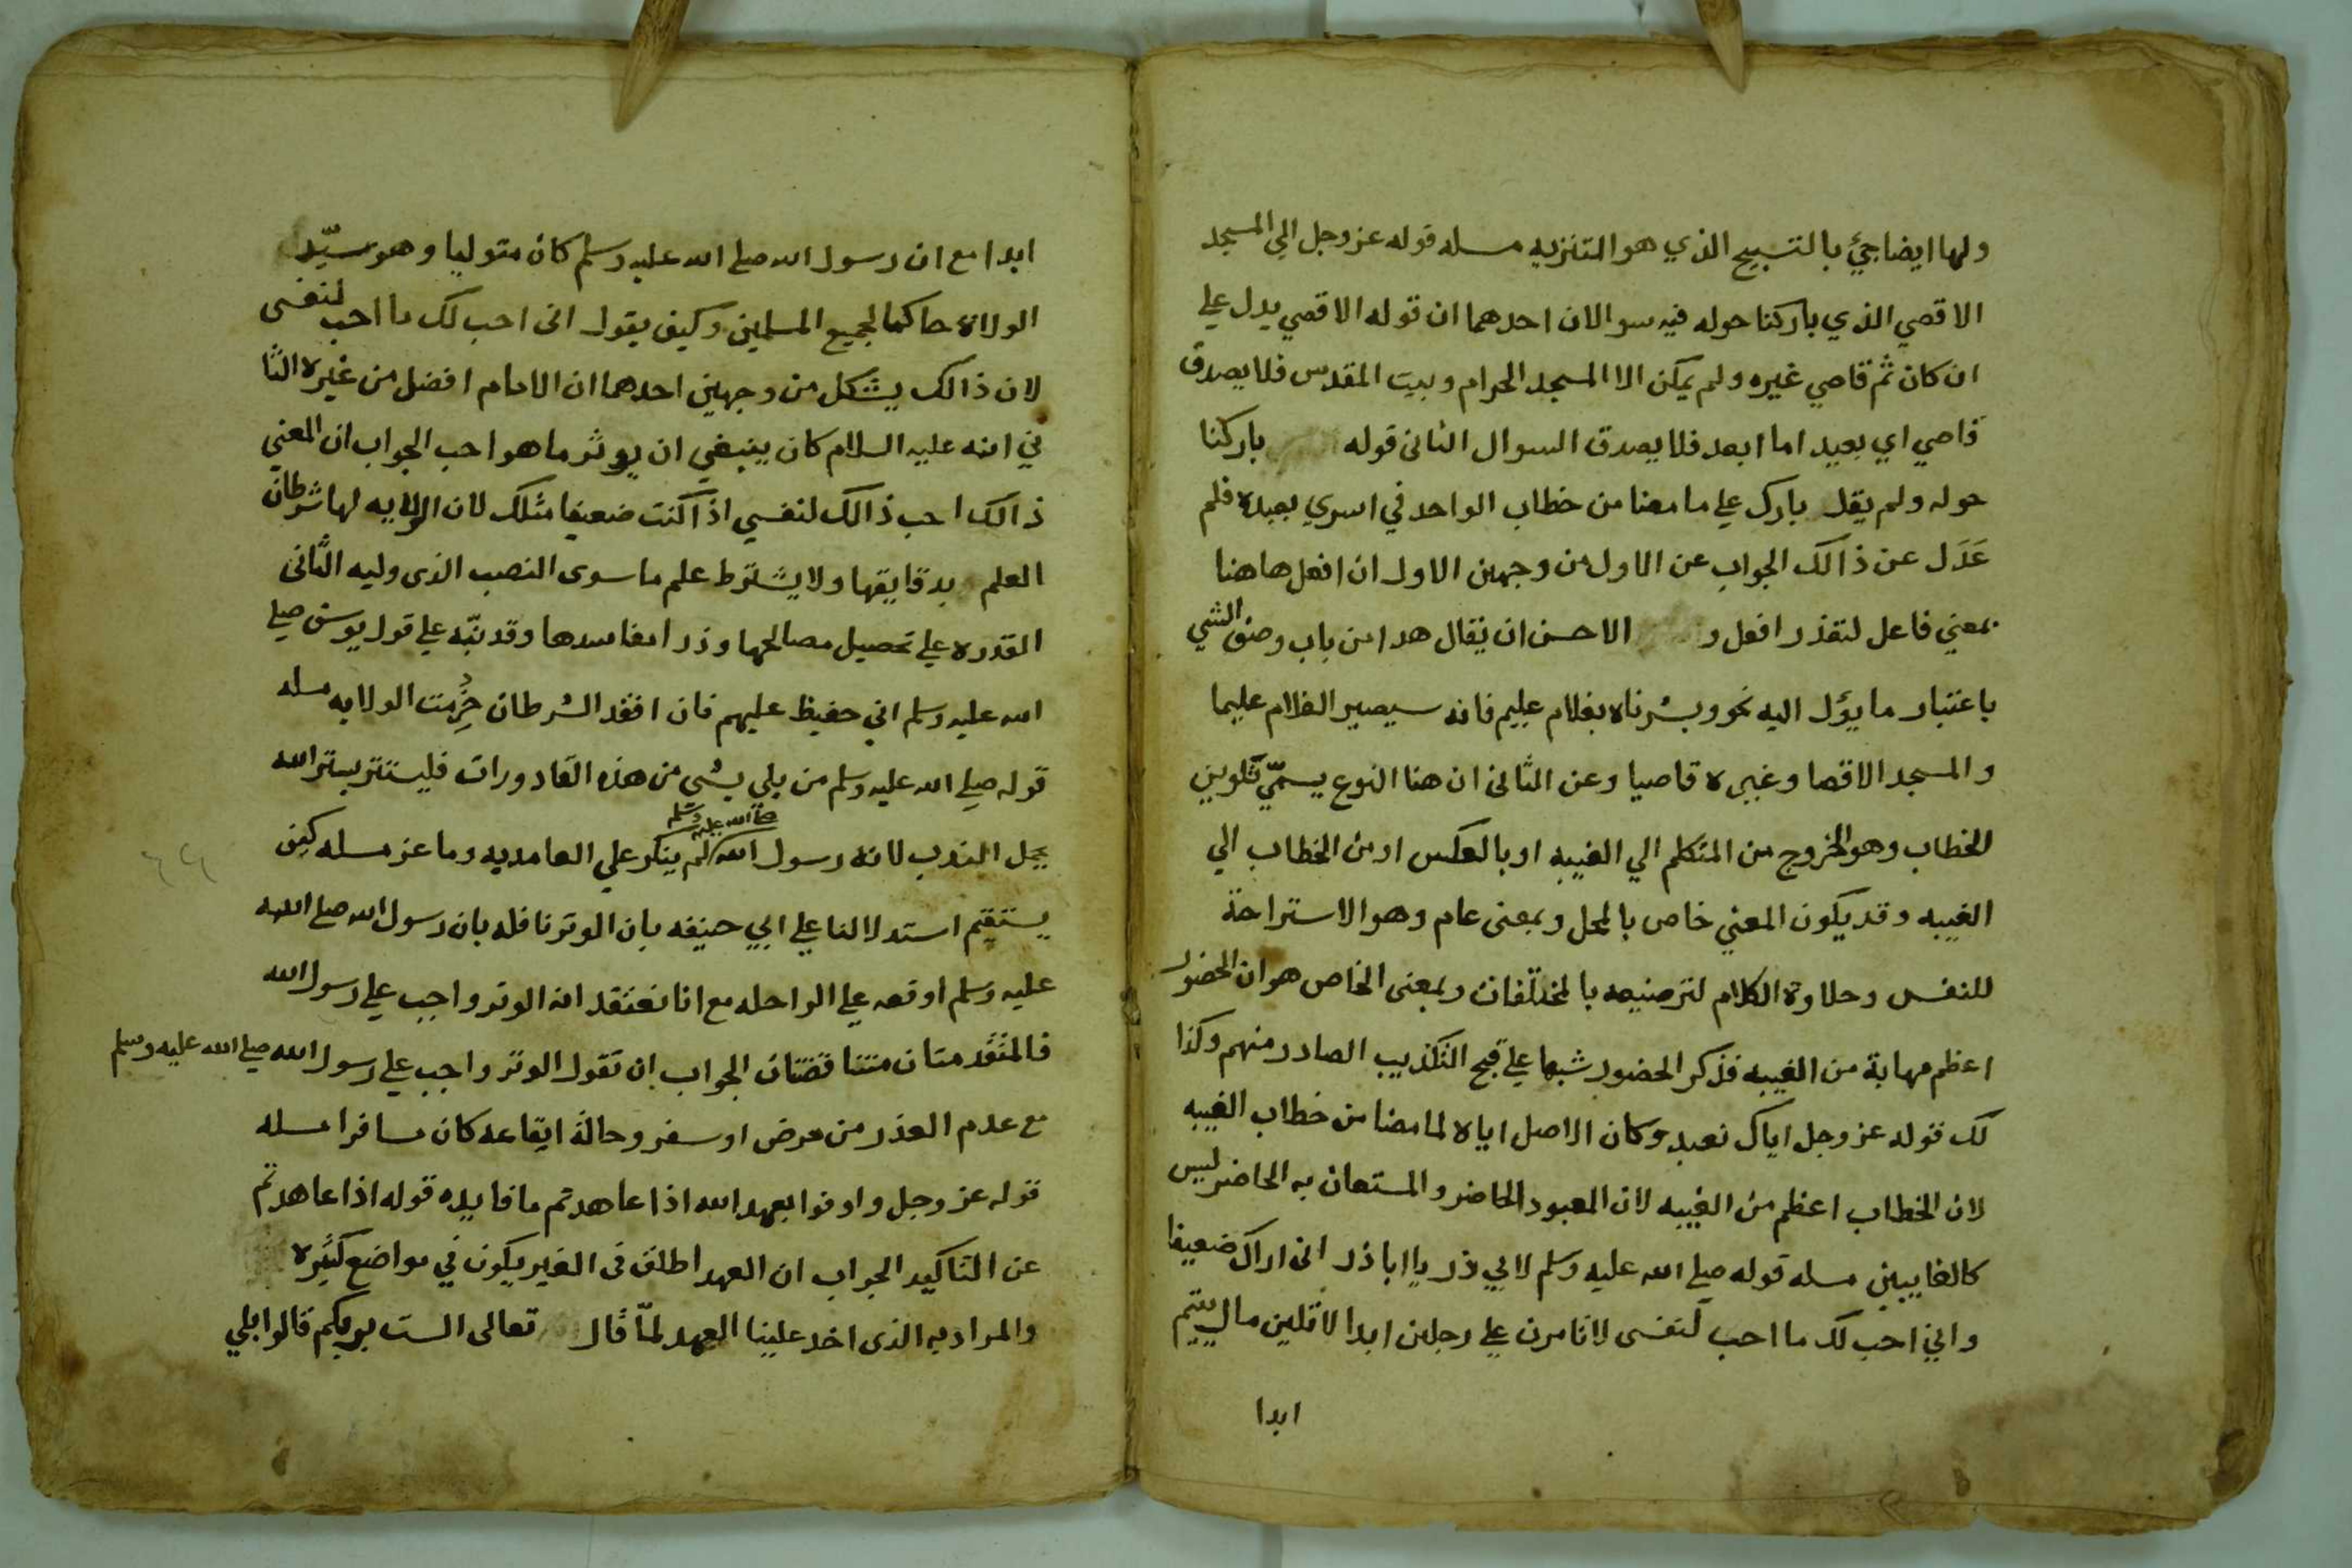 ولها ايضا جيئ بالتسبيح الذي هو التنزيه مسله قوله عز وجل الي المسجد
الاقصي الذي باركنا حوله فيه سوالان احدهما ان قوله الاقصي يدل علي
ان كان ثم قاصي غيره ولم يمكن الا المسجد الحرام وبيت المقدس فلا يصدق
قاصي اي بعيد اما ابعد فلا يصدق السوال الثانى قوله باركنا
حوله ولم يقل بارك علي ما مضا من خطاب الواحد في اسري بعبده فلم
عَدَل عن ذالك الجواب عن الاول من وجهين الاول ان افعل هاهنا
بمعني فاعل لتعذر افعل و الاحسن ان يقال هدا من باب وصف الشي
باعتبار ما يؤل اليه نحو وبشرناه بغلام عليم فانه سيصير الغلام عليما
والمسجد الاقصا وغيره قاصيا وعن الثانى ان هنا النوع يسمّي تلوين
الخطاب وهو الخروج من المتكلم الي الغيبه او بالعكس او من الخطاب الي
الغيبه وقد يكون المعني خاص بالمحل وبمعنى عام وهو الاستراحة
للنفس وحلاوة الكلام لترصيعه بالمختلفات وبمعنى الخاص هو ان الحضور
اعظم مهابة من الغيبه فذكر الحضور شبها علي قبح التكذيب الصادر منهم وكذا
لك قوله عز وجل اياك نعبد وكان الاصل اياه لما مضا من خطاب الغيبه
لان الخطاب اعظم من الغيبه لان المعبود الحاضر والمستعان به الحاضر ليس
كالغايبين مسله قوله صلي الله عليه وسلم لابي ذر يا ابا ذر انى اراك ضعيفا
واني احب لك ما احب لنفسى لا تامرن علي رجلين ابدا لا تلين مال يتيم
ابدا
ابدا مع ان رسول الله صلي الله عليه وسلم كان متوليا وهو سيّد
الولاة حاكما لجميع المسلمين وكيف يقول انى احب لك ما احب لنفسى
لان ذالك يشكل من وجهين احدهما ان الامام افضل من غيره الثا
ني انه عليه السلام كان ينبغي ان يوثر ما هو احب الجواب ان المعني
ذالك احب ذالك لنفسي اذا كنت ضعيفا مثلك لان الولايه لها شرطان
العلم بدقايقها ولا يشترط علم ما سوى النصب الذى وليه الثانى
القدره علي تحصيل مصالحها ودرا مفاسدها وقد نبّه علي قول يوسف صلي
الله عليه وسلم اني حفيظ عليهم فان افقد الشرطان حُرِّمت الولايه مسله
قوله صلي الله عليه وسلم من بلي بشى من هذه القادورات فليستتر بستر الله
يحل الندب لانه رسول الله صلى الله عليه وسلم لم ينكر علي الغامديه وماعز مسله كيف
يستقيم استدلالنا علي ابي حنيفه بان الوتر نافله بان رسول الله صلي الله
عليه وسلم اوقعه علي الراحله مع انا نعتقد ان الوتر واجب علي رسول الله
فالمتقدمتان متناقضتان الجواب ان نقول الوتر واجب علي رسول الله صلي الله عليه وسلم
مع عدم العذر من مرض او سفر وحالة ايقاعه كان مسافرا مسله
قوله عز وجل واوفوا بعهد الله اذا عاهدتم ما فايده قوله اذا عاهدتم
عن التاكيد الجواب ان العهد اطلق فى الغير يكون في مواضع كثيره
والمراد به الذى اخد علينا العهد لمّا قال تعالى الست بربكم قالوا بلي